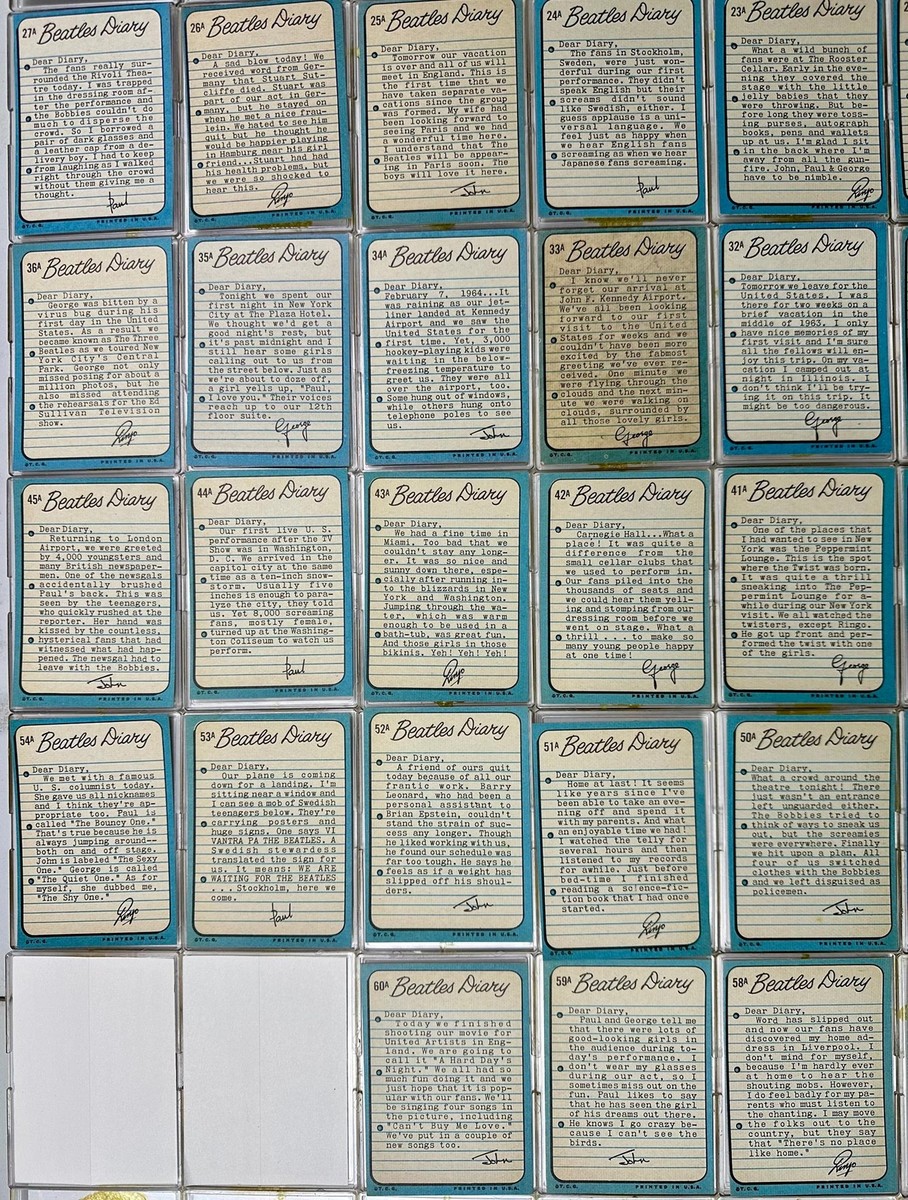 27A Beatles Diary
Dear Diary,
The fans really sur-
rounded the Rivoli Thea-
tre today. I was trapped
in the dressing room af-
ter the performance and
the Bobbies couldn't do
much to disperse the
crowd. So I borrowed a
pair of dark glasses and
a leather cap from a de-
livery boy. I had to keep
from laughing as I walked
right through the crowd
without them giving me a
thought.
Paul
©T.C.G. PRINTED IN U.S.A.
26A Beatles Diary
Dear Diary,
A sad blow today! We
received word from Ger-
many that Stuart Sut-
cliffe died. Stuart was
part of our act in Ger-
many, but he stayed on
when he met a nice frau-
lein. We hated to see him
quit but he thought he
would be happier playing
in Hamburg near his girl
friend...Stuart had had
his health problems, but
we were so shocked to
hear this.
Ringo
©T.C.G. PRINTED IN U.S.A.
25A Beatles Diary
Dear Diary,
Tomorrow our vacation
is over and all of us will
meet in England. This is
the first time that we
have taken separate va-
cations since the group
was formed. My wife had
been looking forward to
seeing Paris and we had
a wonderful time here.
I understand that The
Beatles will be appear-
ing in Paris soon. The
boys will love it here.
John
©T.C.G. PRINTED IN U.S.A.
24A Beatles Diary
Dear Diary,
The fans in Stockholm,
Sweden, were just won-
derful during our first
performance. They didn't
speak English but their
screams didn't sound
like Swedish, either. I
guess applause is a uni-
versal language. We
feel just as happy when
we hear English fans
screaming as when we hear
Japanese fans screaming.
Paul
©T.C.G. PRINTED IN U.S.A.
23A Beatles Diary
Dear Diary,
What a wild bunch of
fans were at The Rooster
Cellar. Early in the eve-
ning they covered the
stage with the little
jelly babies that they
were throwing. But be-
fore long they were toss-
ing purses, autograph
books, pens and wallets
up at us. I'm glad I sit
in the back where I'm
away from all the gun-
fire. John, Paul & George
have to be nimble.
Ringo
©T.C.G. PRINTED IN U.S.A.
36A Beatles Diary
Dear Diary,
George was bitten by a
virus bug during his
first day in the United
States. As a result we
became known as The Three
Beatles as we toured New
York City's Central
Park. George not only
missed posing for about a
million photos, but he
also missed attending
the rehearsals for the Ed
Sullivan Television
show.
Ringo
©T.C.G. PRINTED IN U.S.A.
35A Beatles Diary
Dear Diary,
Tonight we spent our
first night in New York
City at The Plaza Hotel.
We thought we'd get a
good night's rest, but
it's past midnight and I
still hear some girls
calling out to us from
the street below. Just as
we're about to doze off,
a girl yells up, "Paul,
I love you." Their voices
reach up to our 12th
floor suite.
George
©T.C.G. PRINTED IN U.S.A.
34A Beatles Diary
Dear Diary,
February 7, 1964...It
was raining as our jet-
liner landed at Kennedy
Airport and we saw the
United States for the
first time. Yet, 3,000
hookey-playing kids were
waiting in the below-
freezing temperature to
greet us. They were all
over the airport, too.
Some hung out of windows,
while others hung onto
telephone poles to see
us.
John
©T.C.G. PRINTED IN U.S.A.
33A Beatles Diary
Dear Diary,
I know we'll never
forget our arrival at
John F. Kennedy Airport.
We've all been looking
forward to our first
visit to the United
States for weeks and we
couldn't have been more
excited by the fabmost
greeting we've ever re-
ceived. One minute we
were flying through the
clouds and the next min-
ute we were walking on
clouds, surrounded by
all those lovely girls.
George
©T.C.G. PRINTED IN U.S.A.
32A Beatles Diary
Dear Diary,
Tomorrow we leave for the
United States. I was
there for two weeks on a
brief vacation in the
middle of 1963. I only
have nice memories of my
first visit and I'm sure
all the fellows will en-
joy this trip. On my va-
cation I camped out at
night in Illinois. I
don't think I'll be try-
ing it on this trip. It
might be too dangerous.
George
©T.C.G. PRINTED IN U.S.A.
45A Beatles Diary
Dear Diary,
Returning to London
Airport, we were greeted
by 4,000 youngsters and
many British newspaper-
men. One of the newsgals
accidentally brushed
Paul's back. This was
seen by the teenagers,
who quickly rushed at the
reporter. Her hand was
kissed by the countless,
hysterical fans that had
witnessed what had hap-
pened. The newsgal had to
leave with the Bobbies.
John
©T.C.G. PRINTED IN U.S.A.
44A Beatles Diary
Dear Diary,
Our first live U. S.
performance after the TV
Show was in Washington,
D. C. We arrived in the
capitol city at the same
time as a ten-inch snow-
storm. Usually five
inches is enough to para-
lyze the city, they told
us. Yet 8,000 screaming
fans, mostly female,
turned up at the Washing-
ton Coliseum to watch us
perform.
Paul
©T.C.G. PRINTED IN U.S.A.
43A Beatles Diary
Dear Diary,
We had a fine time in
Miami. Too bad that we
couldn't stay any long-
er. It was so nice and
sunny down there, espe-
cially after running in-
to the blizzards in New
York and Washington.
Jumping through the wa-
ter, which was warm
enough to be used in a
bath-tub, was great fun.
And those girls in those
bikinis. Yeh! Yeh! Yeh!
Ringo
©T.C.G. PRINTED IN U.S.A.
42A Beatles Diary
Dear Diary,
Carnegie Hall...What a
place! It was quite a
difference from the
small cellar clubs that
we used to perform in.
Our fans piled into the
thousands of seats and
we could hear them yell-
ing and stomping from our
dressing room before we
went on stage. What a
thrill . . . to make so
many young people happy
at one time!
George
©T.C.G. PRINTED IN U.S.A.
41A Beatles Diary
Dear Diary,
One of the places that
I had wanted to see in New
York was the Peppermint
Lounge. This is the spot
where the Twist was born.
It was quite a thrill
sneaking into The Pep-
permint Lounge for a-
while during our New York
visit. We all watched the
twisters, except Ringo.
He got up front and per-
formed the twist with one
of the girls.
George
©T.C.G. PRINTED IN U.S.A.
54A Beatles Diary
Dear Diary,
We met with a famous
U. S. columnist today.
She gave us all nicknames
and I think they're ap-
propriate too. Paul is
called "The Bouncy One."
That's true because he is
always jumping around--
both on and off stage.
John is labeled "The Sexy
One." George is called
"The Quiet One." As for
myself, she dubbed me,
"The Shy One."
Ringo
©T.C.G. PRINTED IN U.S.A.
53A Beatles Diary
Dear Diary,
Our plane is coming
down for a landing. I'm
sitting near a window and
I can see a mob of Swedish
teenagers below. They're
carrying posters and
huge signs. One says VI
VANTRA PA THE BEATLES. A
Swedish stewardess
translated the sign for
us. It means: WE ARE
WAITING FOR THE BEATLES
. . . Stockholm, here we
come.
Paul
©T.C.G. PRINTED IN U.S.A.
52A Beatles Diary
Dear Diary,
A friend of ours quit
today because of all our
frantic work. Barry
Leonard, who had been a
personal assistant to
Brian Epstein, couldn't
stand the strain of suc-
cess any longer. Though
he liked working with us,
he found our schedule was
far too tough. He says he
feels as if a weight has
slipped off his shoul-
ders.
John
©T.C.G. PRINTED IN U.S.A.
51A Beatles Diary
Dear Diary,
Home at last! It seems
like years since I've
been able to take an eve-
ning off and spend it
with my parents. And what
an enjoyable time we had!
I watched the telly for
several hours and then
listened to my records
for awhile. Just before
bed-time I finished
reading a science-fic-
tion book that I had once
started.
Ringo
©T.C.G. PRINTED IN U.S.A.
50A Beatles Diary
Dear Diary,
What a crowd around the
theatre tonight! There
just wasn't an entrance
left unguarded either.
The Bobbies tried to
think of ways to sneak us
out, but the screamies
were everywhere. Finally
we hit upon a plan. All
four of us switched
clothes with the Bobbies
and we left disguised as
policemen.
John
©T.C.G. PRINTED IN U.S.A.
60A Beatles Diary
Dear Diary,
Today we finished
shooting our movie for
United Artists in Eng-
land. We are going to
call it "A Hard Day's
Night." We all had so
much fun doing it and we
just hope that it is pop-
ular with our fans. We'll
be singing four songs in
the picture, including
"Can't Buy Me Love."
We've put in a couple of
new songs too.
John
©T.C.G. PRINTED IN U.S.A.
59A Beatles Diary
Dear Diary,
Paul and George tell me
that there were lots of
good-looking girls in
the audience during to-
day's performance. I
don't wear my glasses
during our act, so I
sometimes miss out on the
fun. Paul likes to say
that he has seen the girl
of his dreams out there.
He knows I go crazy be-
cause I can't see the
birds.
John
©T.C.G. PRINTED IN U.S.A.
58A Beatles Diary
Dear Diary,
Word has slipped out
and now our fans have
discovered my home ad-
dress in Liverpool. I
don't mind for myself,
because I'm hardly ever
at home to hear the
shouting mobs. However,
I do feel badly for my pa-
rents who must listen to
the chanting. I may move
the folks out to the
country, but they say
that "There's no place
like home."
Ringo
©T.C.G. PRINTED IN U.S.A.